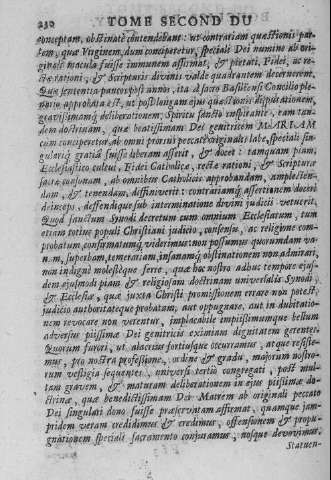 230 TOME SECOND DU
conceptam, obstinatè contendebant: ut contrariam quæstionis par-
tem, quæ Virginem, dum conciperetur, speciali Dei numine ab ori-
ginali macula fuisse immunem affirmat, & pietati, Fidei, ac re-
ctæ rationi, & Scripturis divinis valde quadrantem decernerent.
Quæ sententia paucos post annos, ita à sacro Basileensi Concilio ple-
nario approbata est, ut post longam ejus quæstionis disputationem,
gravissimamq; deliberationem, Spiritu sancto inspirante, eam tan-
dem doctrinam, quæ beatissimam Dei genitricem MARIAM
cum conciperetur, ab omni prorsus peccati originalis labe, speciali sin-
gulariq; gratiâ fuisse liberam asserit, & docet: tamquam piam,
Ecclesiastico cultui, Fidei Catholicæ, rectæ rationi, & Scripturæ
sacræ consonam, ab omnibus Catholicis approbandam, amplecten-
dam, & tenendam, diffiniverit: contrariamq; assertionem doceri
deinceps, defendique sub interminatione divini judicii vetuerit.
Quod sanctum Synodi decretum cum omnium Ecclesiarum, tum
etiam totius populi Christiani judicio, consensu, ac religione com-
probatum, consummatumq; viderimus: non possumus quorumdam va-
nam, superbam, temerariam, insanamq; obstinationem non admirari,
non indignè molestéque ferre, quâ hoc nostro adhuc tempore ejus-
dem ejusmodi piam & religiosam doctrinam universalis Synodi,
& Ecclesiæ, quæ juxta Christi promissionem errare non potest,
judicio authoritateque probatam, aut oppugnare, aut in dubitatio-
nem revocare non verentur, implacabile impiissimumque bellum
adversus piissimæ Dei genitricis eximiam dignitatem gerentes.
Quorum furori, ut alacrius fortiusque occurramus, atque resiste-
mus, pro nostra professione, ordine & gradu, majorum nostro-
rum vestigia sequentes, universi tertiò congregati, post mul-
tam gravem, & maturam deliberationem in ejus piissimæ do-
ctrinæ, quæ benedictissimam Dei Matrem ab originali peccato
Dei singulari dono fuisse præservatam affirmat, quamque jam-
pridem veram credidimus & credimus, offensionem & propu-
gnationem speciali sacramento conjuramus, nosque devovimus.
Statuen-